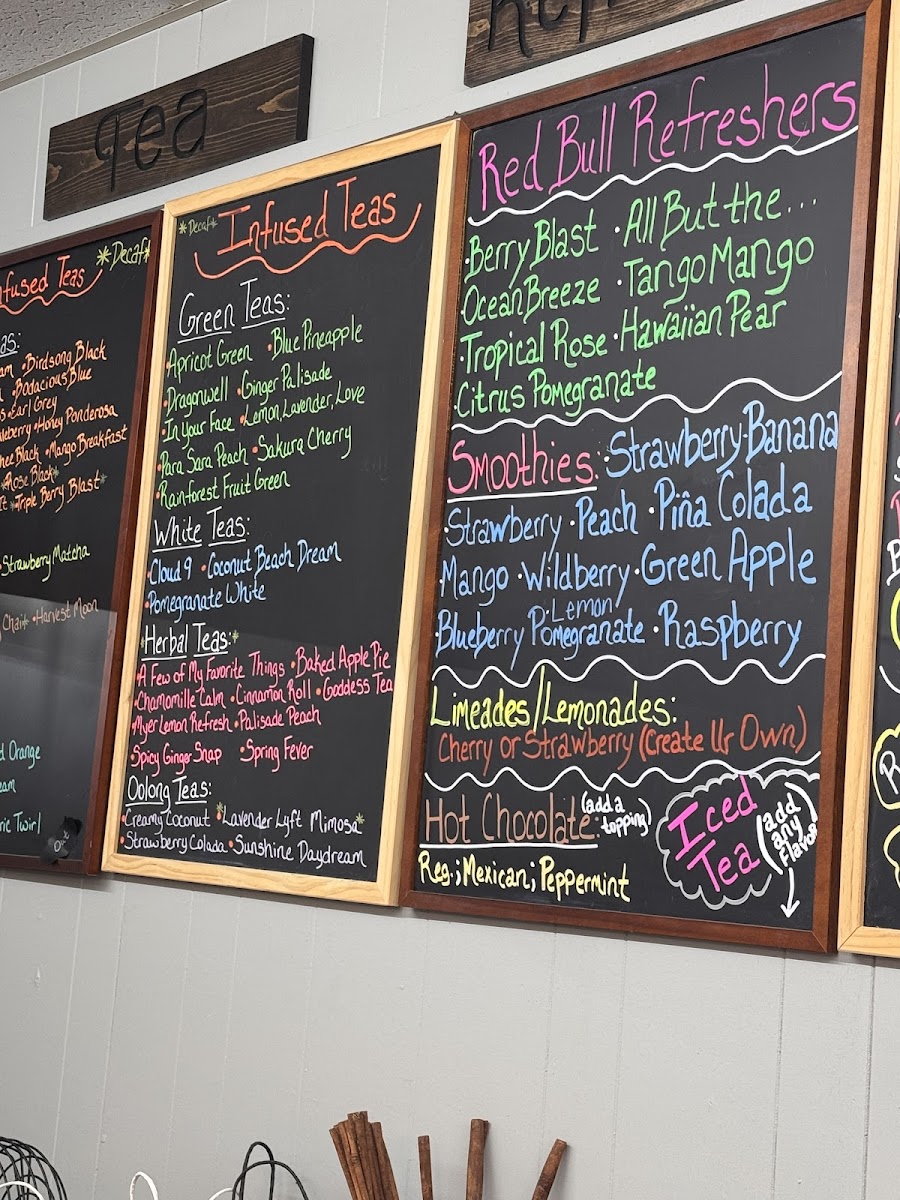 Tea
Infused Teas *Decaf*
Birdsong Black
• Bodacious Blue
• Earl Grey
• Honey Ponderosa
Black • Mango Breakfast
Rose Black*
• Triple Berry Blast*
• Strawberry Matcha
Chai* • Harvest Moon
Orange
Twirl
*Decaf* Infused Teas
Green Teas:
• Apricot Green • Blue Pineapple
• Dragonwell • Ginger Palisade
• In Your Face • Lemon, Lavender, Love
• Para Sara Peach • Sakura Cherry
• Rainforest Fruit Green
White Teas:
• Cloud 9 • Coconut Beach Dream
• Pomegranate White
*Herbal Teas:*
• A Few of My Favorite Things • Baked Apple Pie
• Chamomille Calm • Cinnamon Roll • Goddess Tea
• Myer Lemon Refresh • Palisade Peach
• Spicy Ginger Snap • Spring Fever
Oolong Teas:
• Creamy Coconut *Lavender Lyft Mimosa*
• Strawberry Colada • Sunshine Daydream
Red Bull Refreshers
• Berry Blast • All But the...
• Ocean Breeze • Tango Mango
• Tropical Rose • Hawaiian Pear
• Citrus Pomegranate
Smoothies: • Strawberry-Banana
• Strawberry • Peach • Piña Colada
• Mango • Wildberry • Green Apple
• Blueberry Lemon Pomegranate • Raspberry
Limeades/Lemonades:
Cherry or Strawberry (Create Ur Own)
Hot Chocolate: (add a topping)
Reg.; Mexican; Peppermint
Iced Tea (add any flavor)